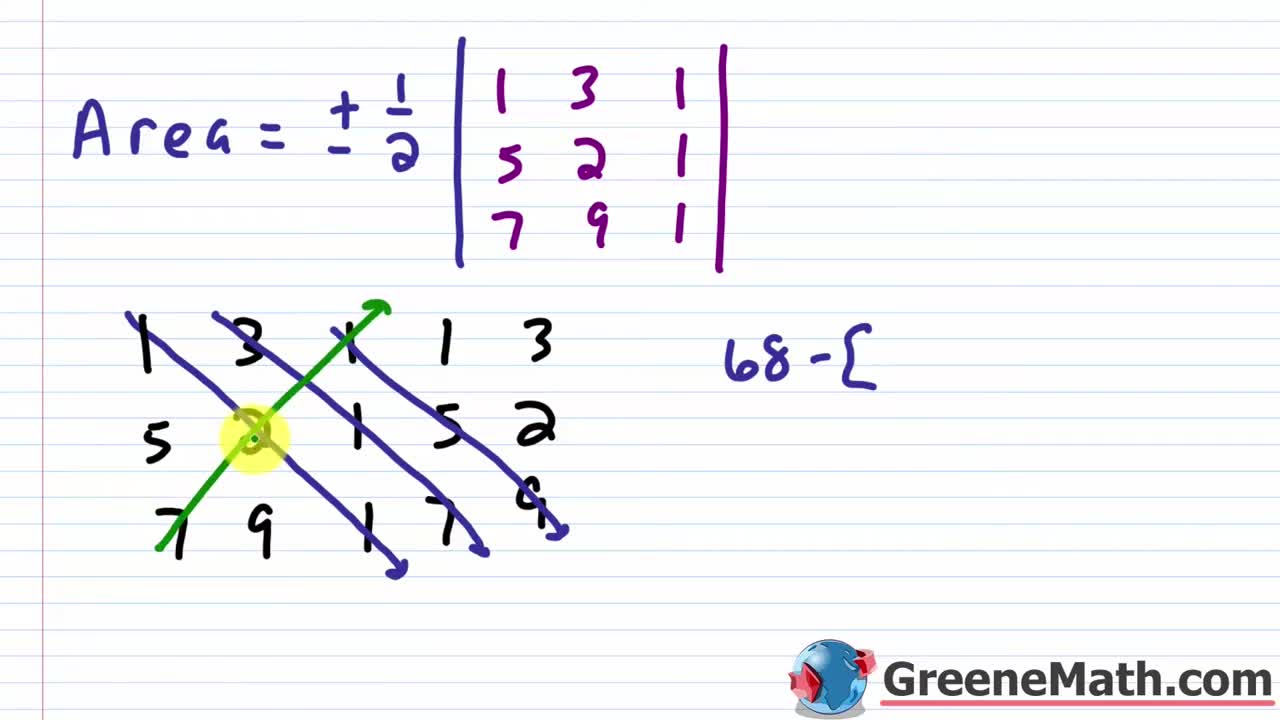 Area = ± 1/2 | 1 3 1 |
5 2 1
7 9 1
1 3 1 1 3
68 - [
5 2 1 5 2
7 9 1 7 9
GreeneMath.com